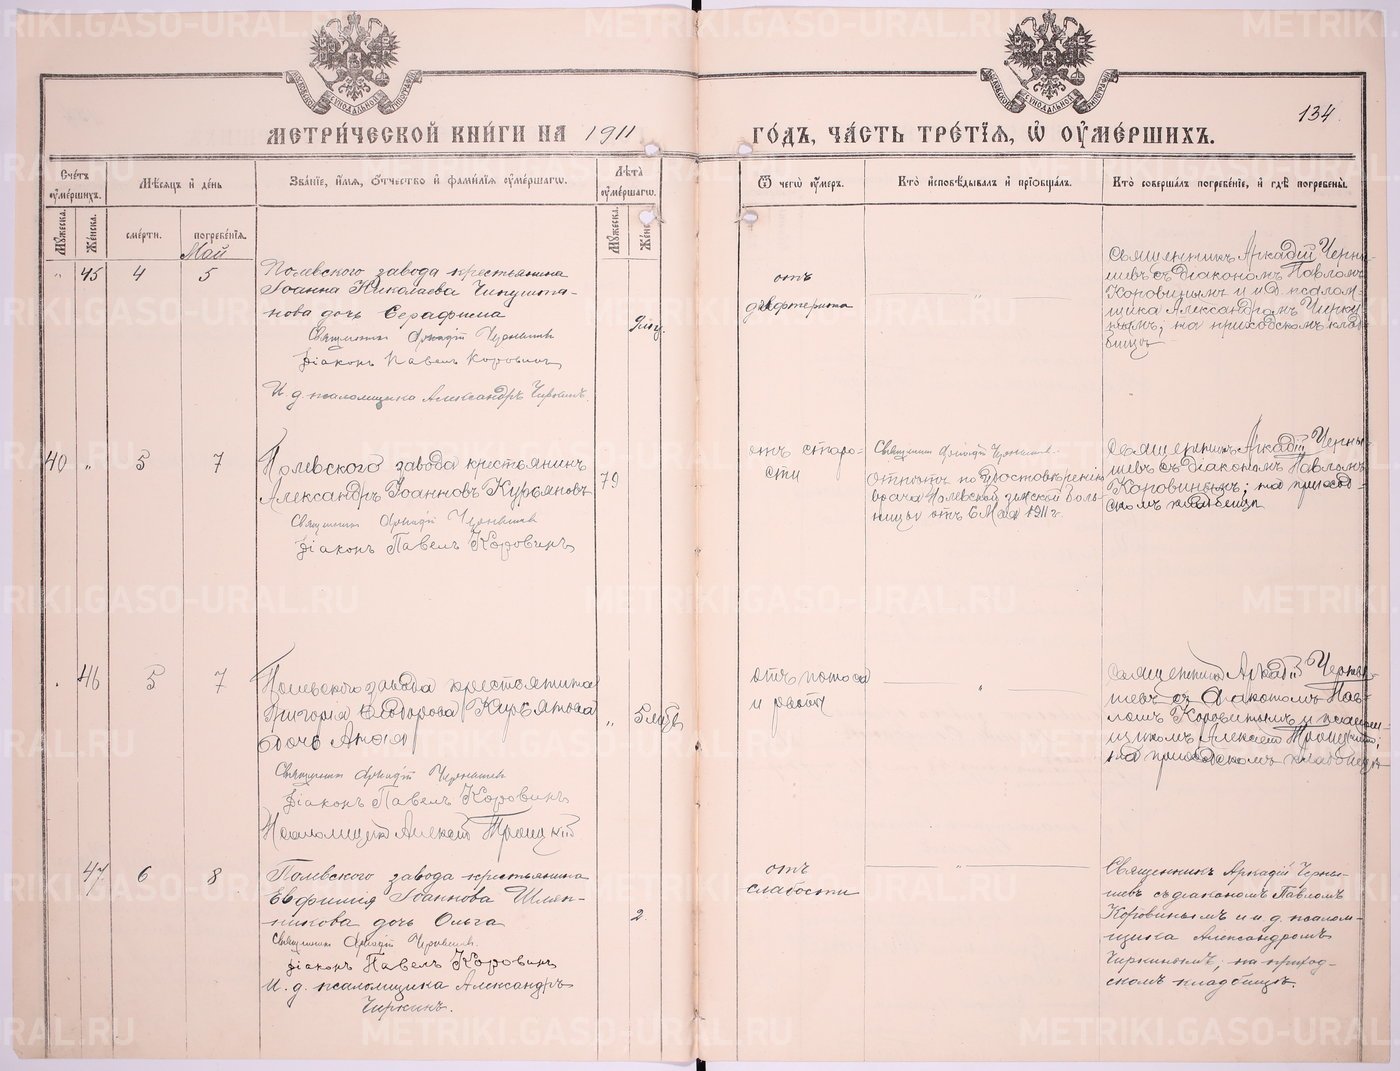 МЕТРИ́ЧЕСКОЙ КНИ́ГИ НА 1911 ГО́ДЪ, ЧА́СТЬ ТРЕ́ТІЯ, Ѽ ОУ҆МЕ́РШИХЪ.
134.
Сче́тъ оу҆ме́ршихъ.
Мѣ́сяцъ и҆ де́нь
Зва́ніе, и҆́мя, ѻ҆́тчество и҆ фами́лія оу҆ме́ршагѡ.
Лѣ́та оу҆ме́ршагѡ.
Ѿ чегѡ̀ оу҆́меръ.
Кто̀ и҆сповѣ́дывалъ и҆ прїѡбща́лъ.
Кто̀ соверша́лъ погребе́ніе, и҆ гдѣ̀ погребены̀.
Мꙋ́жеска.
Же́нска.
сме́рти.
погребе́нія.
Мꙋ́жеска.
Же́нс
Май
" 45 4 5
Полевского завода крестьянина
Іоанна Николаева Чипушта-
нова дочь Серафима
Священникъ Аркадій Чернышевъ
Діаконъ Павелъ Коровинъ
И. д. псаломщика Александръ Чиркинъ.
отъ
дифтерита
"
Священникъ Аркадій Черны-
шевъ съ діакономъ Павломъ
Коровинымъ и и.д. псалом-
щика Александромъ Чирки-
нымъ; на приходскомъ клад-
бищѣ
40 " 5 7
Полевского завода крестьянинъ
Александръ Іоанновъ Курьяновъ
79
Священникъ Аркадій Чернышевъ
Діаконъ Павелъ Коровинъ
отъ старо-
сти
Священникъ Аркадій Чернышевъ.
Отпѣтъ по удостовѣренію
врача Полевской земской боль-
ницы отъ 6 Мая 1911 г.
Священникъ Аркадій Черны-
шевъ съ діакономъ Павломъ
Коровинымъ; на приход-
скомъ кладбищѣ
46 5 7
Полевского завода крестьянина
Григорія Ѳеодорова Курьянова
дочь
"
5
Священникъ Аркадій Чернышевъ
Діаконъ Павелъ Коровинъ
Псаломщикъ Алексѣй Троицкій
отъ поноса
и рвоты
"
Священникъ Аркадій Черны-
шевъ съ діакономъ Пав-
ломъ Коровинымъ и псалом-
щикомъ Алексѣемъ Троицкимъ;
на приходскомъ кладбищѣ
47 6 8
Полевского завода крестьянина
Евфимія Іоаннова Шляп-
никова дочь Ольга
2.
Священникъ Аркадій Чернышевъ.
Діаконъ Павелъ Коровинъ
И. д. псаломщика Александръ
Чиркинъ.
отъ
слабости
"
Священникъ Аркадій Черны-
шевъ съ діакономъ Павломъ
Коровинымъ и и. д. псалом-
щика Александромъ
Чиркинымъ; на приход-
скомъ кладбищѣ.